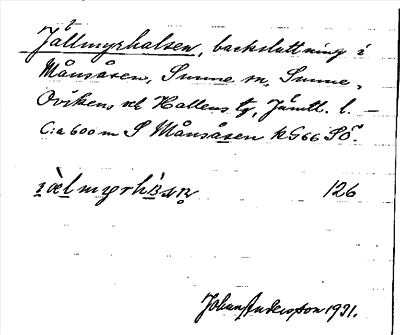 Jållmyrhalsen, backsluttning i
Månsåsen, Sunne sn, Sunne,
Ovikens och Hallens tg, Jämtl. l. —
C:a 600 m S Månsåsen kG66 SÖ.
126
Johan Andersson 1931.